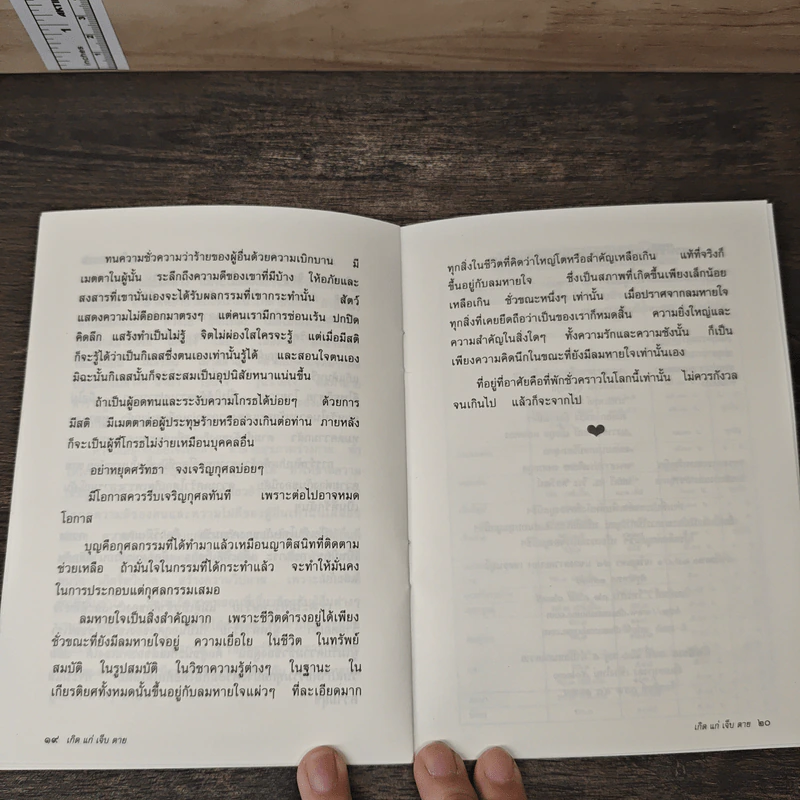 ทนความชั่วความว่าร้ายของผู้อื่นด้วยความเบิกบาน มี
เมตตาในผู้นั้น ระลึกถึงความดีของเขาที่มีบ้าง ให้อภัยและ
สงสารที่เขานั่นเองจะได้รับผลกรรมที่เขากระทำนั้น สัตว์
แสดงความไม่ดีออกมาตรงๆ แต่คนเรามีการซ่อนเร้น ปกปิด
คิดลึก แสร้งทำเป็นไม่รู้ จิตไม่ผ่องใสใครจะรู้ แต่เมื่อมีสติ
ก็จะรู้ได้ว่าเป็นกิเลสซึ่งตนเองเท่านั้นรู้ได้ และสอนใจตนเอง
มิฉะนั้นกิเลสนั้นก็จะสะสมเป็นอุปนิสัยหนาแน่นขึ้น
ถ้าเป็นผู้อดทนและระงับความโกรธได้บ่อยๆ ด้วยการ
มีสติ มีเมตตาต่อผู้ประทุษร้ายหรือล่วงเกินต่อท่าน ภายหลัง
ก็จะเป็นผู้ที่โกรธไม่ง่ายเหมือนบุคคลอื่น
อย่าหยุดศรัทธา จงเจริญกุศลบ่อยๆ
มีโอกาสควรรีบเจริญกุศลทันที เพราะต่อไปอาจหมด
โอกาส
บุญคือกุศลกรรมที่ได้ทำมาแล้วเหมือนญาติสนิทที่ติดตาม
ช่วยเหลือ ถ้ามั่นใจในกรรมที่ได้กระทำแล้ว จะทำให้มั่นคง
ในการประกอบแต่กุศลกรรมเสมอ
ลมหายใจเป็นสิ่งสำคัญมาก เพราะชีวิตดำรงอยู่ได้เพียง
ชั่วขณะที่ยังมีลมหายใจอยู่ ความเยื่อใย ในชีวิต ในทรัพย์
สมบัติ ในรูปสมบัติ ในวิชาความรู้ต่างๆ ในฐานะ ใน
เกียรติยศทั้งหมดนั้นขึ้นอยู่กับลมหายใจแผ่วๆ ที่ละเอียดมาก
๑๙ เกิด แก่ เจ็บ ตาย
ทุกสิ่งในชีวิตที่คิดว่าใหญ่โตหรือสำคัญเหลือเกิน แท้ที่จริงก็
ขึ้นอยู่กับลมหายใจ ซึ่งเป็นสภาพที่เกิดขึ้นเพียงเล็กน้อย
เหลือเกิน ชั่วขณะหนึ่งๆ เท่านั้น เมื่อปราศจากลมหายใจ
ทุกสิ่งที่เคยยึดถือว่าเป็นของเราก็หมดสิ้น ความยิ่งใหญ่และ
ความสำคัญในสิ่งใดๆ ทั้งความรักและความชังนั้น ก็เป็น
เพียงความคิดนึกในขณะที่ยังมีลมหายใจเท่านั้นเอง
ที่อยู่ที่อาศัยคือที่พักชั่วคราวในโลกนี้เท่านั้น ไม่ควรกังวล
จนเกินไป แล้วก็จะจากไป
เกิด แก่ เจ็บ ตาย ๒๐